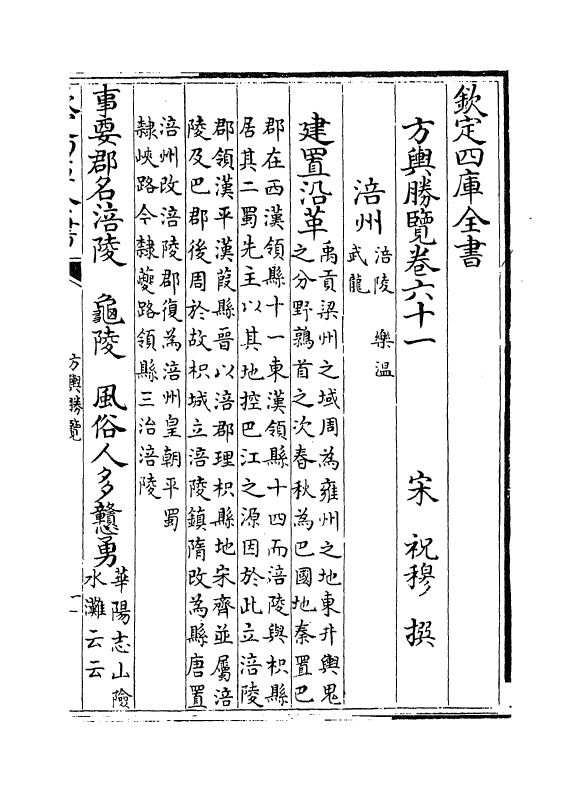 欽定四庫全書
方輿勝覽卷六十一
宋　祝穆　撰
涪州
涪陵　樂溫
武龍
建置沿革
禹貢梁州之域周為雍州之地東井輿鬼
之分野鶉首之次春秋為巴國地秦置巴
郡在西漢領縣十一東漢領縣十四而涪陵與枳縣
居其二蜀先主以其地控巴江之源因於此立涪陵
郡領漢平漢葭縣晉以涪郡理枳縣地宋齊並屬涪
陵及巴郡後周於故枳城立涪陵鎮隋改為縣唐置
涪州改涪陵郡復為涪州皇朝平蜀
隸峽路今隸夔路領縣三治涪陵
事要郡名涪陵　龜陵　風俗人多戇勇
華陽志山險
水灘云云
方輿勝覽
一